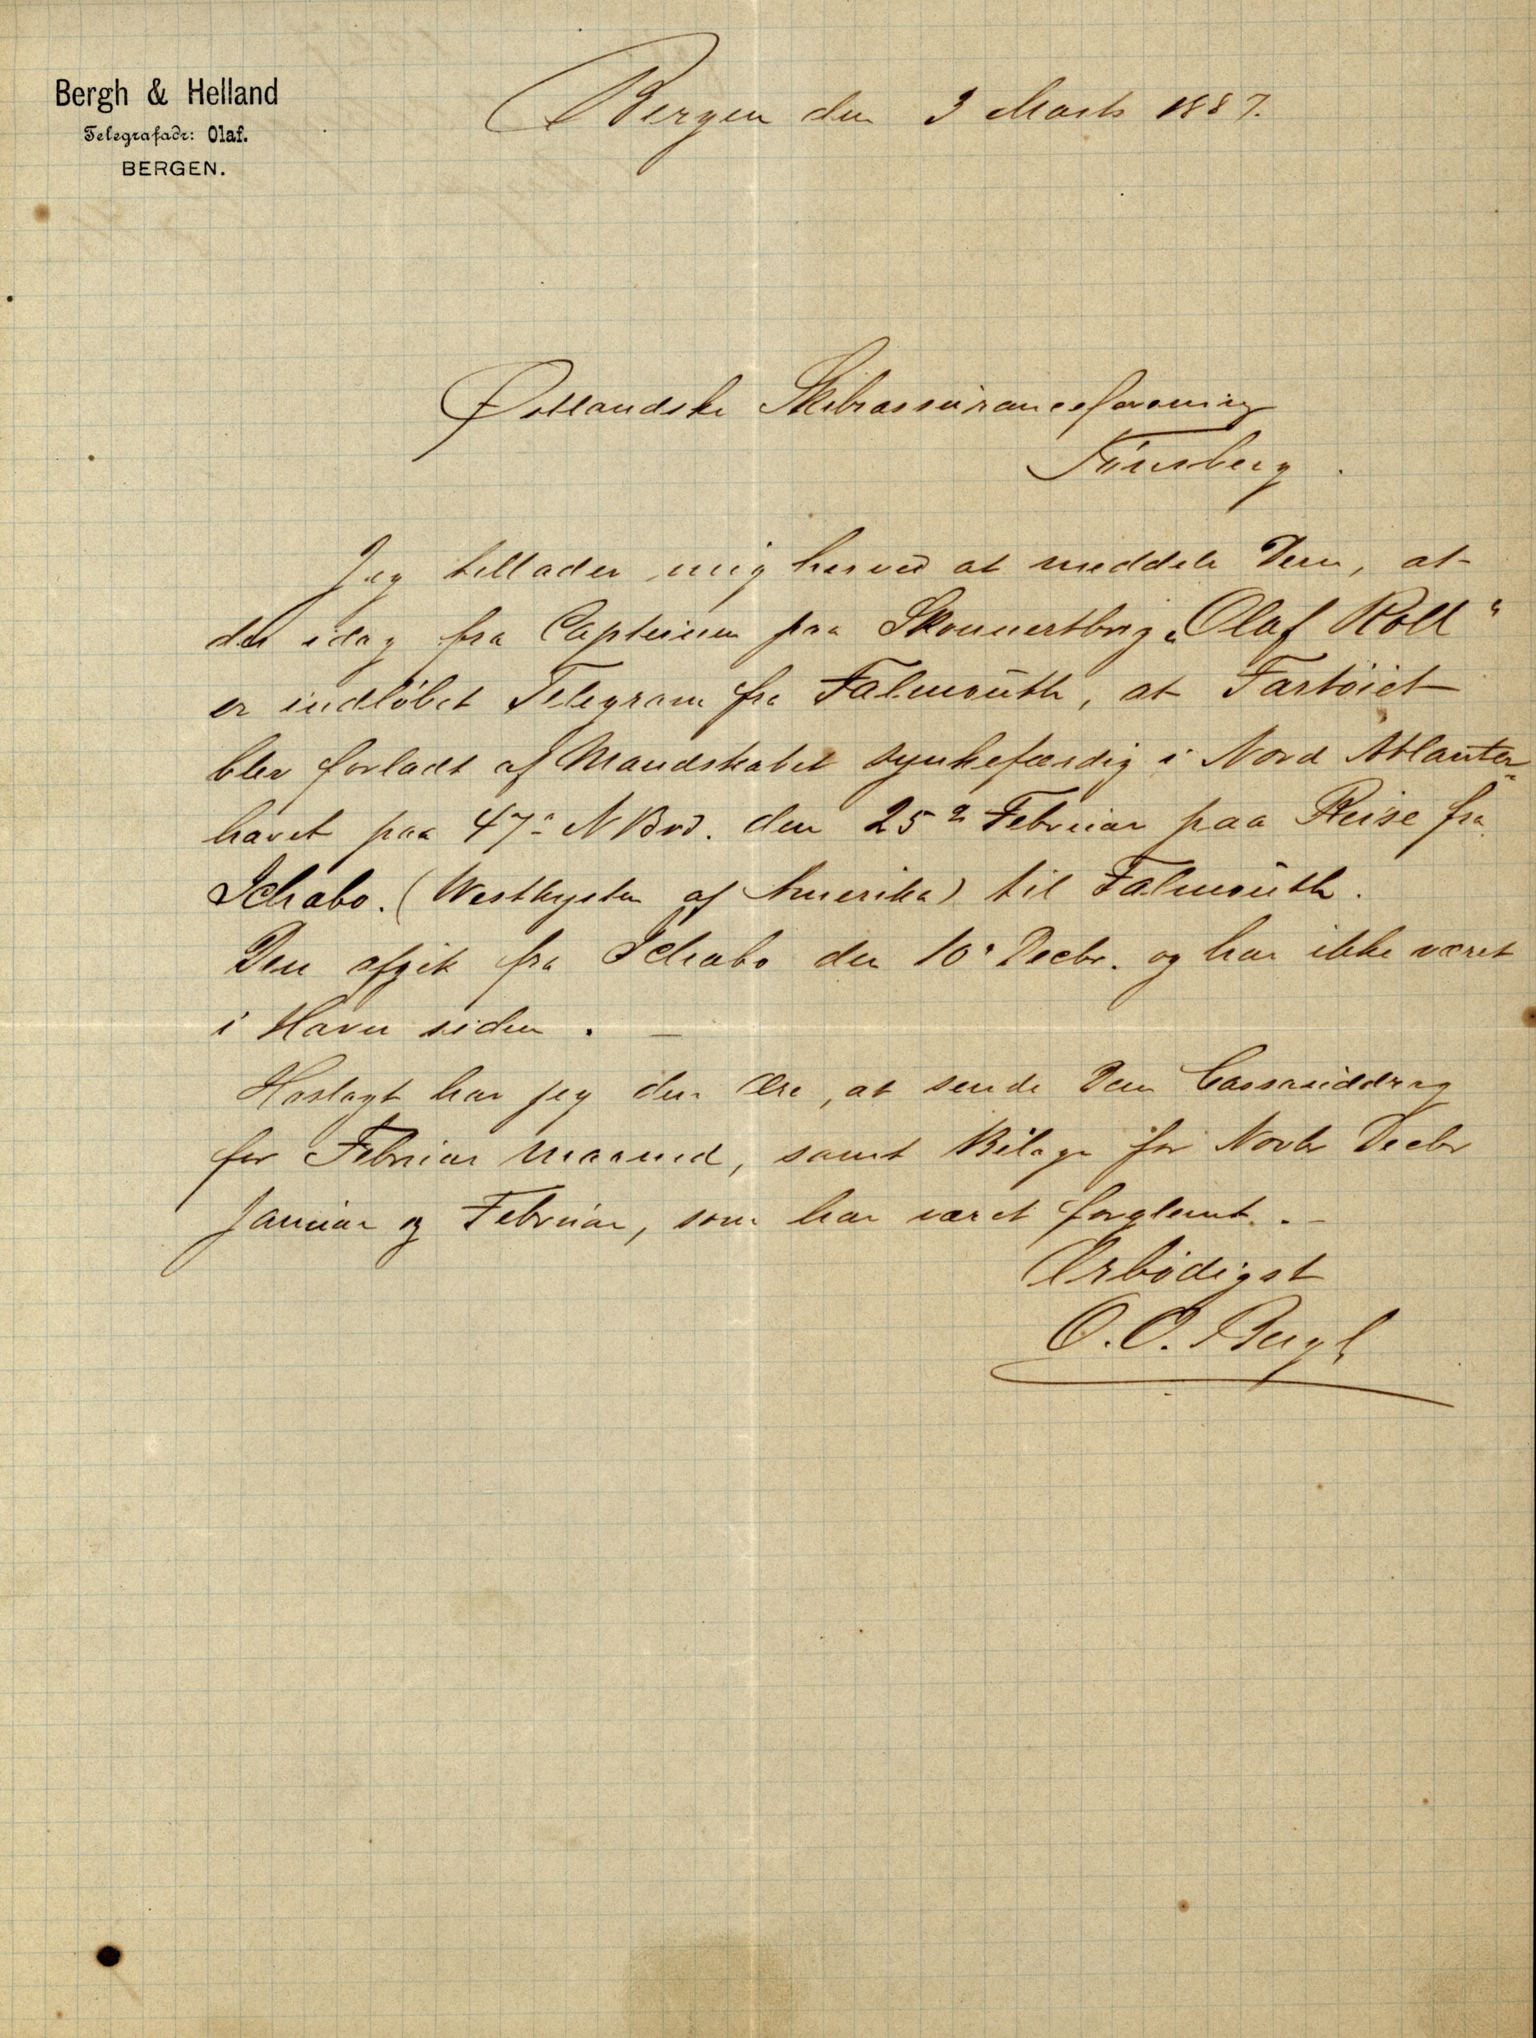 Bergh & Helland
Telegrafadr: Olaf.
BERGEN.
Bergen den 3 Marts 1887.
Østlandske Skibsassuranceforening
Tønsberg.
Jeg tillader mig herved at meddele Dem, at
der idag fra Capteinen paa Skonnertbrig „Olaf Roll"
er indløbet Telegram fra Falmouth, at Fartøiet
blev forladt af Mandskabet synkefærdig i Nord Atlanter
havet paa 47° N Brd. den 25 Februar paa Reise fra
Ichabo. (Westkysten af Amerika) til Falmouth.
Den afgik fra Ichabo den 10 Decbr. og har ikke været
i Havn siden. —
Hoslagt har jeg den Ære, at sende Dem Cassauddrag
for Februar Maaned, samt Bilage for Novbr Decbr
Januar og Februar, som har været forglemt. —
Ærbødigst
O. O. Bergh